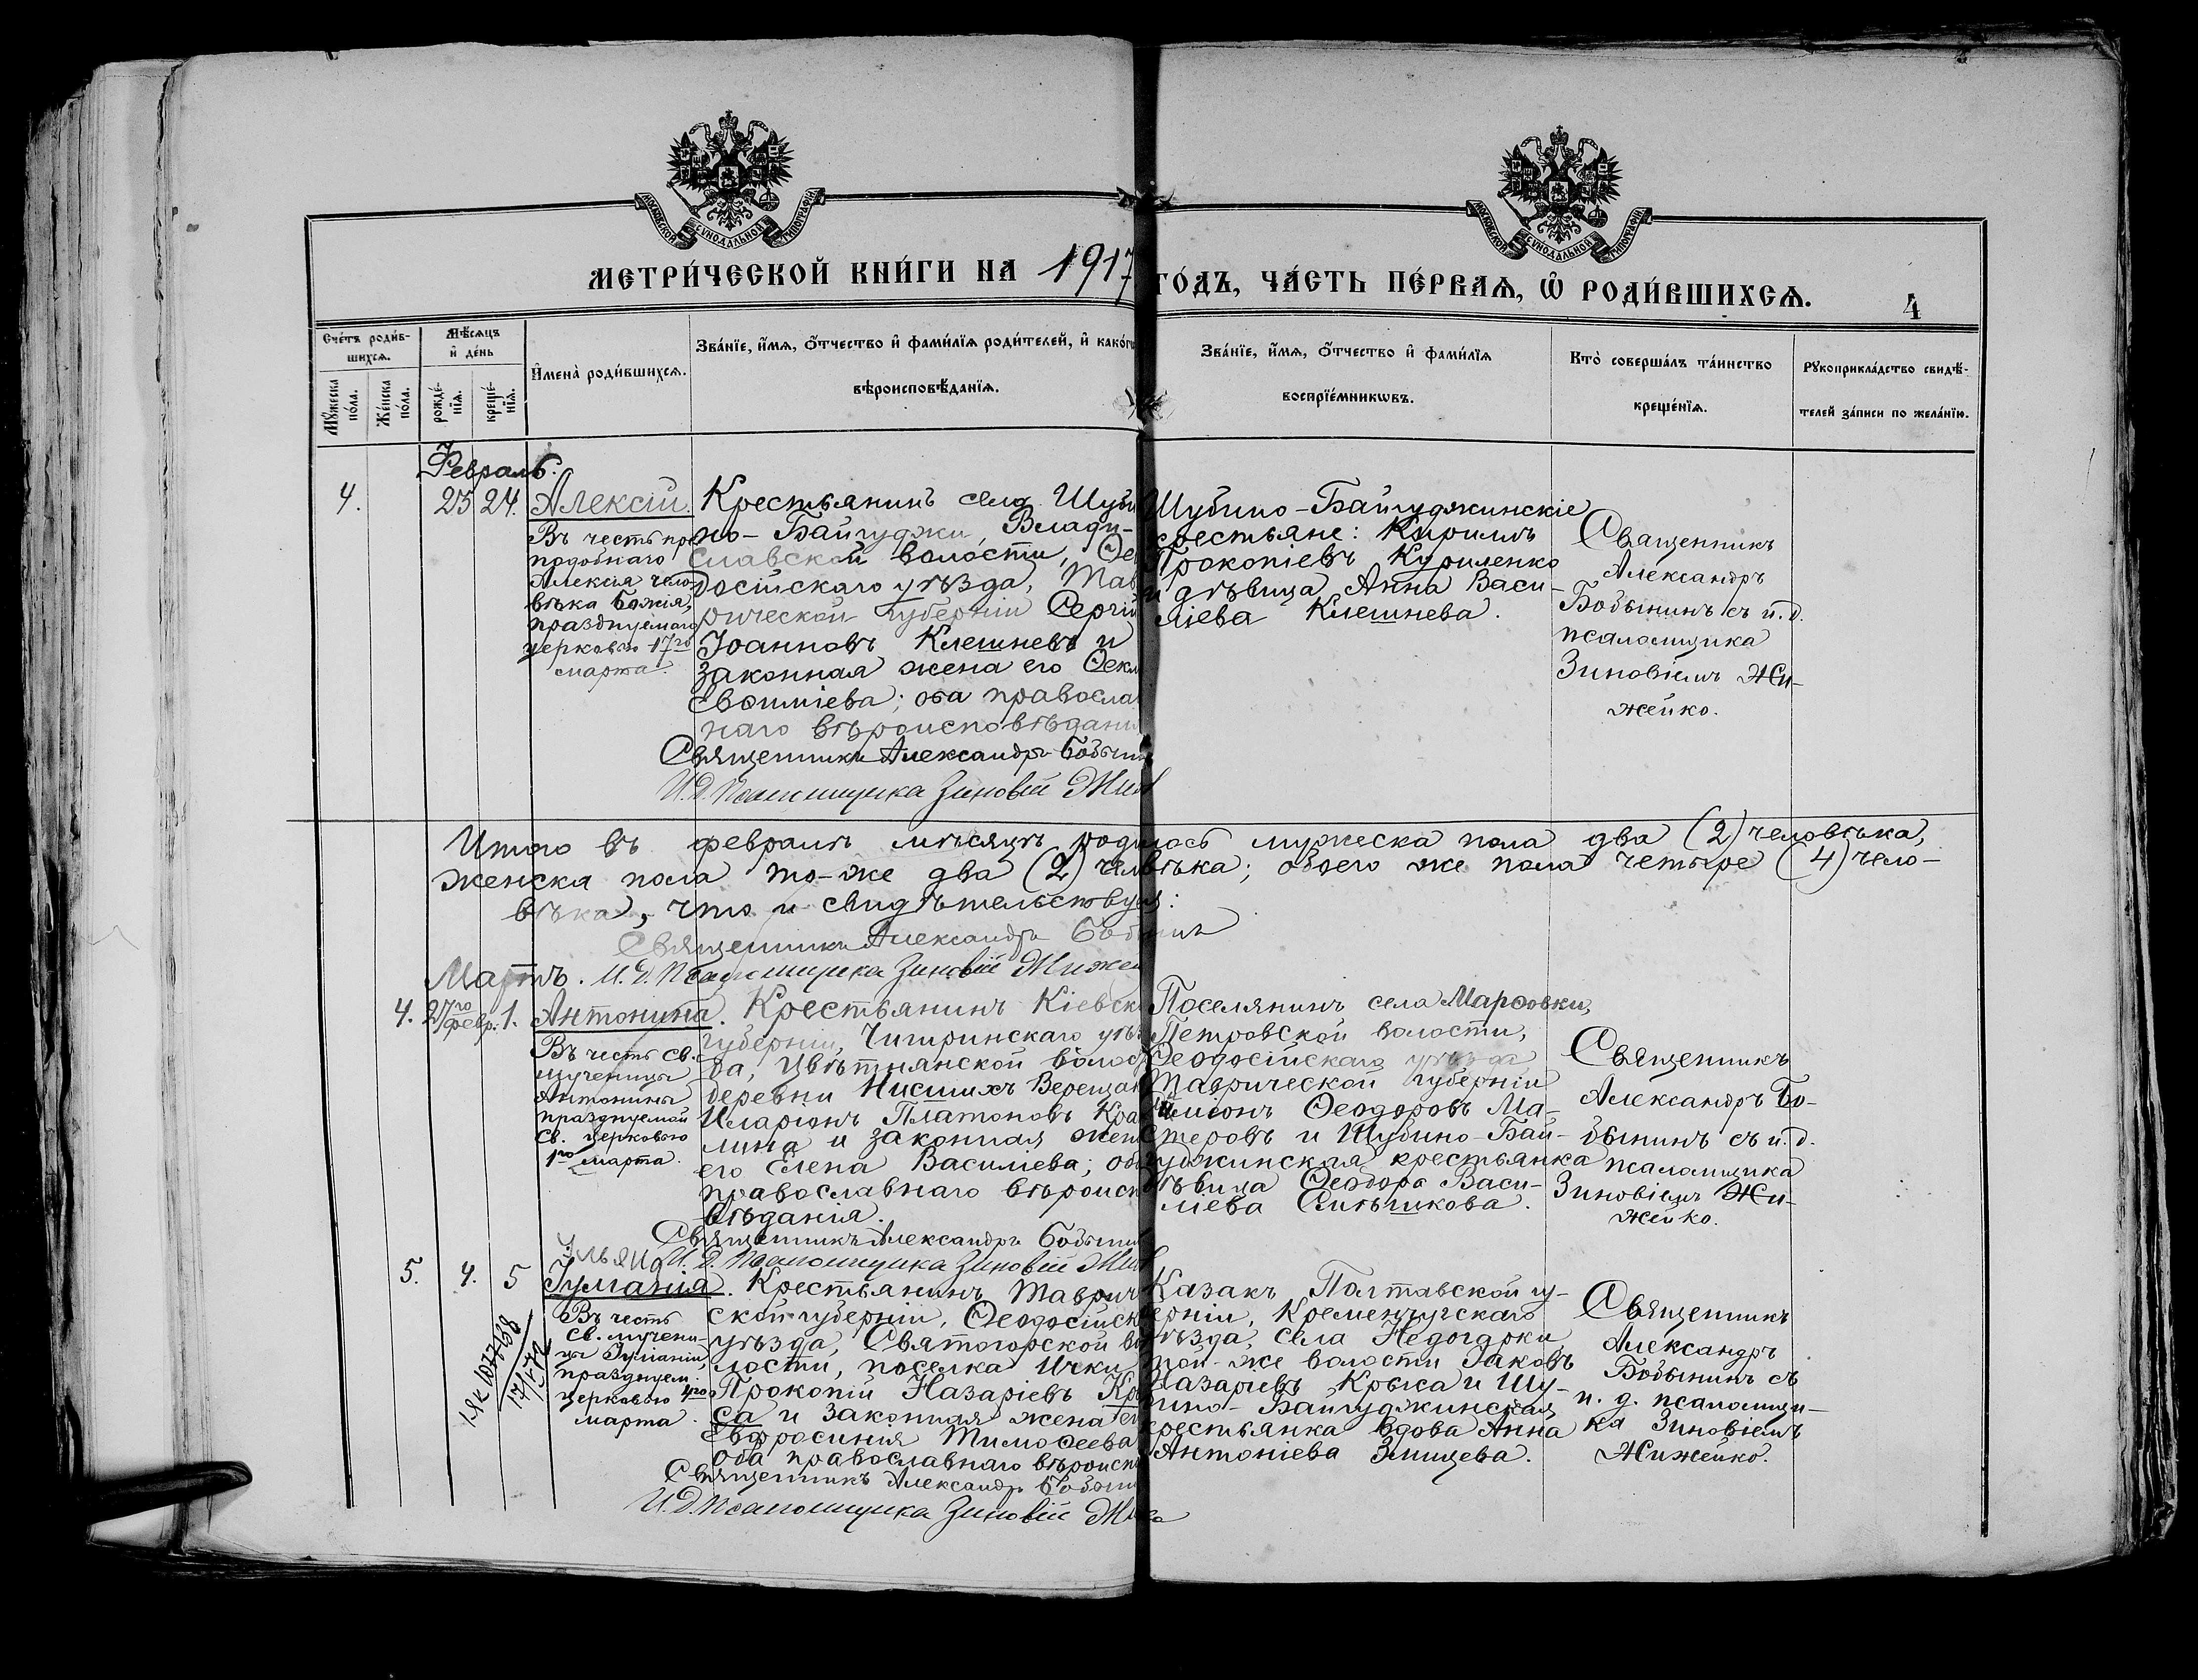 МОСКОВСКОЙ СѴНОДАЛЬНОЙ ТИПОГРАФІИ
МОСКОВСКОЙ СѴНОДАЛЬНОЙ ТИПОГРАФІИ
МЕТРИ́ЧЕСКОЙ КНИ́ГИ НА 1917
ГО́ДЪ, ЧА́СТЬ ПЕ́РВАѦ, Ѽ РОДИ́ВШИХСѦ.
4
Сче́тъ роди́в-
шихсѧ.
Мꙋ́жеска
по́ла.
Же́нска
по́ла.
Мѣ́сѧцъ
и҆ де́нь
рожде́-
нїѧ.
креще́-
нїѧ.
И҆мена̀ роди́вшихсѧ.
Зва́нїе, и҆́мѧ, ѻ҆́тчество и҆ фами́лїѧ роди́телей, и҆ како́гѡ
вѣроисповѣ́данїѧ.
Зва́нїе, и҆́мѧ, ѻ҆́тчество и҆ фами́лїѧ
воспрїе́мникѡвъ.
Кто̀ соверша́лъ та́инство
креще́нїѧ.
Рꙋкоприкла́дство свидѣ́-
телей за́писи по жела́нїю.
Февраль.
4.
23
24.
Алексій.
Въ честь пре
подобнаго
Алексія чело-
вѣка Божія,
празднуемаго
церковью 17го
марта.
Крестьянинъ села Шуби
но-Байгуджи, Влади-
славской волости, Ѳе
досійскаго уѣзда, Тав
рической губерніи Сергій
Іоанновъ Клешневъ и
законная жена его Ѳекл
Евѳиміева; оба правосла
наго вѣроисповѣдані
Священникъ Александръ Бобынин
И.д. Псаломщика Зиновій Жиж
Шубино-Байгуджинскіе
крестьяне: Кириллъ
Прокопіевъ Куриленко
и дѣвица Анна Васи-
ліева Клешнева.
Священникъ
Александръ
Бобынинъ съ и.д.
псаломщика
Зиновіемъ Жи-
жейко.
Итого въ февралѣ мѣсяцѣ родилось мужеска пола два (2) человѣка,
женска пола то-же два (2) человѣка; обоего же пола четыре (4) чело-
вѣка, что и свидѣтельствуемъ:
Священникъ Александръ Бобынинъ
Мартъ. И.д. Псаломщика Зиновій Жижей
4.
27го
февр.
1.
Антонина.
Въ честь св.
мученицы
Антонины
празднуемой
св. церковью
1го марта.
Крестьянинъ Кіевск
губерніи, Чигиринскаго уѣз
да, Цвѣтнянской волос
деревни Нисшихъ Верещак
Иларіонъ Платоновъ Кра
лина и законная жен
его Елена Василіева; оба
православнаго вѣроиспо
вѣданія.
Священникъ Александръ Бобынин
И.д. Псаломщика Зиновій Жиж
Поселянинъ села Марфовки,
Петровской волости,
Ѳеодосійскаго уѣзда
Таврической губерніи
Ѳеодоровъ Ма-
стеровъ и Шубино-Бай-
гуджинская крестьянка
дѣвица Ѳеодора Васи-
ліева Ситьшикова.
Священникъ
Александръ Бо-
бынинъ съ и.д.
псаломщика
Зиновіемъ Жи-
жейко.
5.
4.
5
Ульяна
Іуліанія.
Въ честь
св. мучени-
цы Іуліаніи,
празднуем.
церковью 4го
марта.
Крестьянинъ Таврич
ской губерніи, Ѳеодосійск
уѣзда, Святогорской во
лости, поселка Ички
Прокопій Назаріевъ Кры
са и законная жена его
Евфросинія Тимоѳеева
оба православнаго вѣроиспо
Священникъ Александръ Бобынин
И.д. Псаломщика Зиновій Жиж
Казакъ Полтавской гу-
берніи, Кременчугскаго
уѣзда, села Недогарки
той-же волости Іаковъ
Назаріевъ Крыса и Шу-
бино-Байгуджинская
крестьянка вдова Анна
Антоніева Злищева.
Священникъ
Александръ
Бобынинъ съ
и. д. псаломщи-
ка Зиновіемъ
Жижейко.